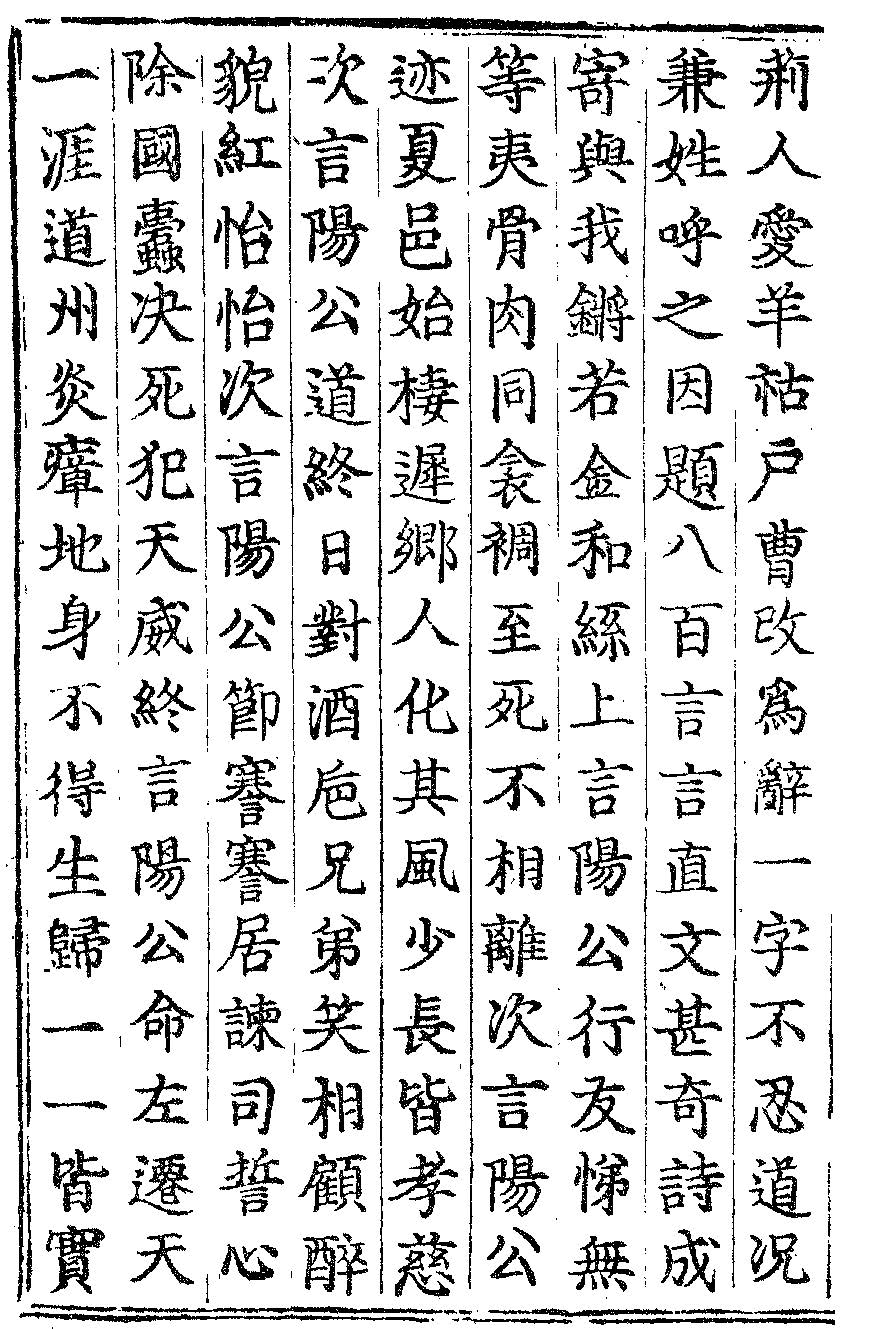 荊人愛羊祜戶曹改爲辭一字不忍道况
兼姓呼之因題八百言言直文甚奇詩成
寄與我鏘若金和絲上言陽公行友悌無
等夷骨肉同衾裯至死不相離次言陽公
迹夏邑始棲遲鄉人化其風少長皆孝慈
次言陽公道終日對酒巵兄弟笑相顧醉
貌紅怡怡次言陽公節謇謇居諫司誓心
除國蠧决死犯天威終言陽公命左遷天
一涯道州炎瘴地身不得生歸一一皆實